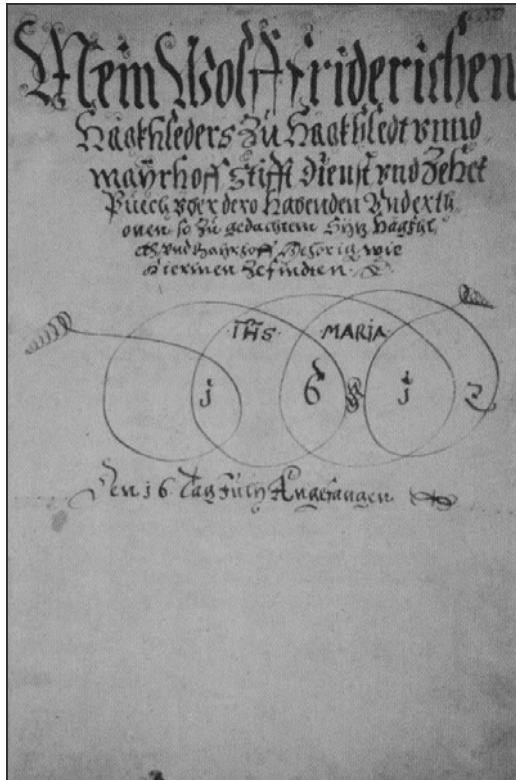 Mein Wolff Friderichen
Hägkhleders zu Hagkhledt vnnd
mayrhoff Stifft Dienst vnd Zehet
Puech vber dero habenden Vnderth
onen so zu gedachtem Sytz Hägkhl
edt vnd Mayrhoff Gehörig wie
Hierinen Zefindten.
IHS MARIA
j 6 j 2
Den 16 Tag July Angefangen